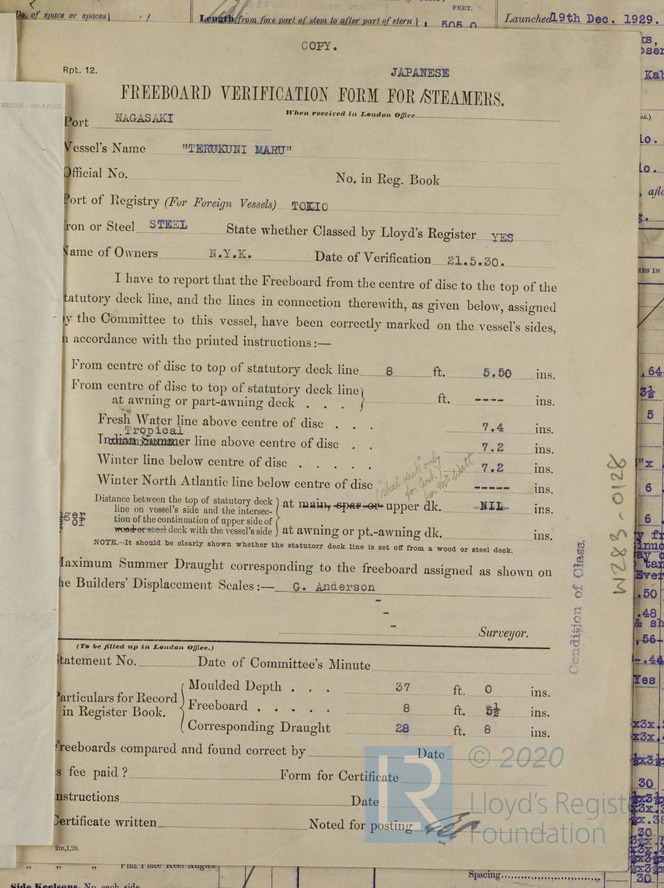 Length (from fore part of stem to after part of stern)
FEET.
505.0
Launched 19th Dec. 1929.
COPY.
Rpt. 12.
JAPANESE
FREEBOARD VERIFICATION FORM FOR /STEAMERS.
When received in London Office
Port NAGASAKI
Vessel's Name "TERUKUNI MARU"
Official No. No. in Reg. Book
Port of Registry (For Foreign Vessels) TOKIO
Iron or Steel STEEL State whether Classed by Lloyd's Register YES
Name of Owners N.Y.K. Date of Verification 21.5.30.
I have to report that the Freeboard from the centre of disc to the top of the
statutory deck line, and the lines in connection therewith, as given below, assigned
by the Committee to this vessel, have been correctly marked on the vessel's sides,
in accordance with the printed instructions:—
From centre of disc to top of statutory deck line 8 ft. 5.50 ins.
From centre of disc to top of statutory deck line
at awning or part-awning deck . . . ft. ---- ins.
Fresh Water line above centre of disc . . . 7.4 ins.
Tropical
Indian Summer line above centre of disc . . 7.2 ins.
Winter line below centre of disc . . . . . 7.2 ins.
Winter North Atlantic line below centre of disc ----- ins.
Distance between the top of statutory deck
line on vessel's side and the intersec-
tion of the continuation of upper side of
wood or steel deck with the vessel's side
at main, spar or upper dk. NIL ins.
at awning or pt.-awning dk. ins.
NOTE.—It should be clearly shown whether the statutory deck line is set off from a wood or steel deck.
Maximum Summer Draught corresponding to the freeboard assigned as shown on
the Builders' Displacement Scales:— G. Anderson
Surveyor.
(To be filled up in London Office.)
Statement No. Date of Committee's Minute
Particulars for Record
in Register Book.
Moulded Depth . . . 37 ft. 0 ins.
Freeboard . . . . . 8 ft. 5½ ins.
Corresponding Draught 28 ft. 8 ins.
Freeboards compared and found correct by Date
Is fee paid ? Form for Certificate
Instructions Date
Certificate written Noted for posting
2m,1,29.
Condition of Class.
W283-0128
© 2020
Lloyd's Register
Foundation
Side Keelsons, No. each side
Spacing